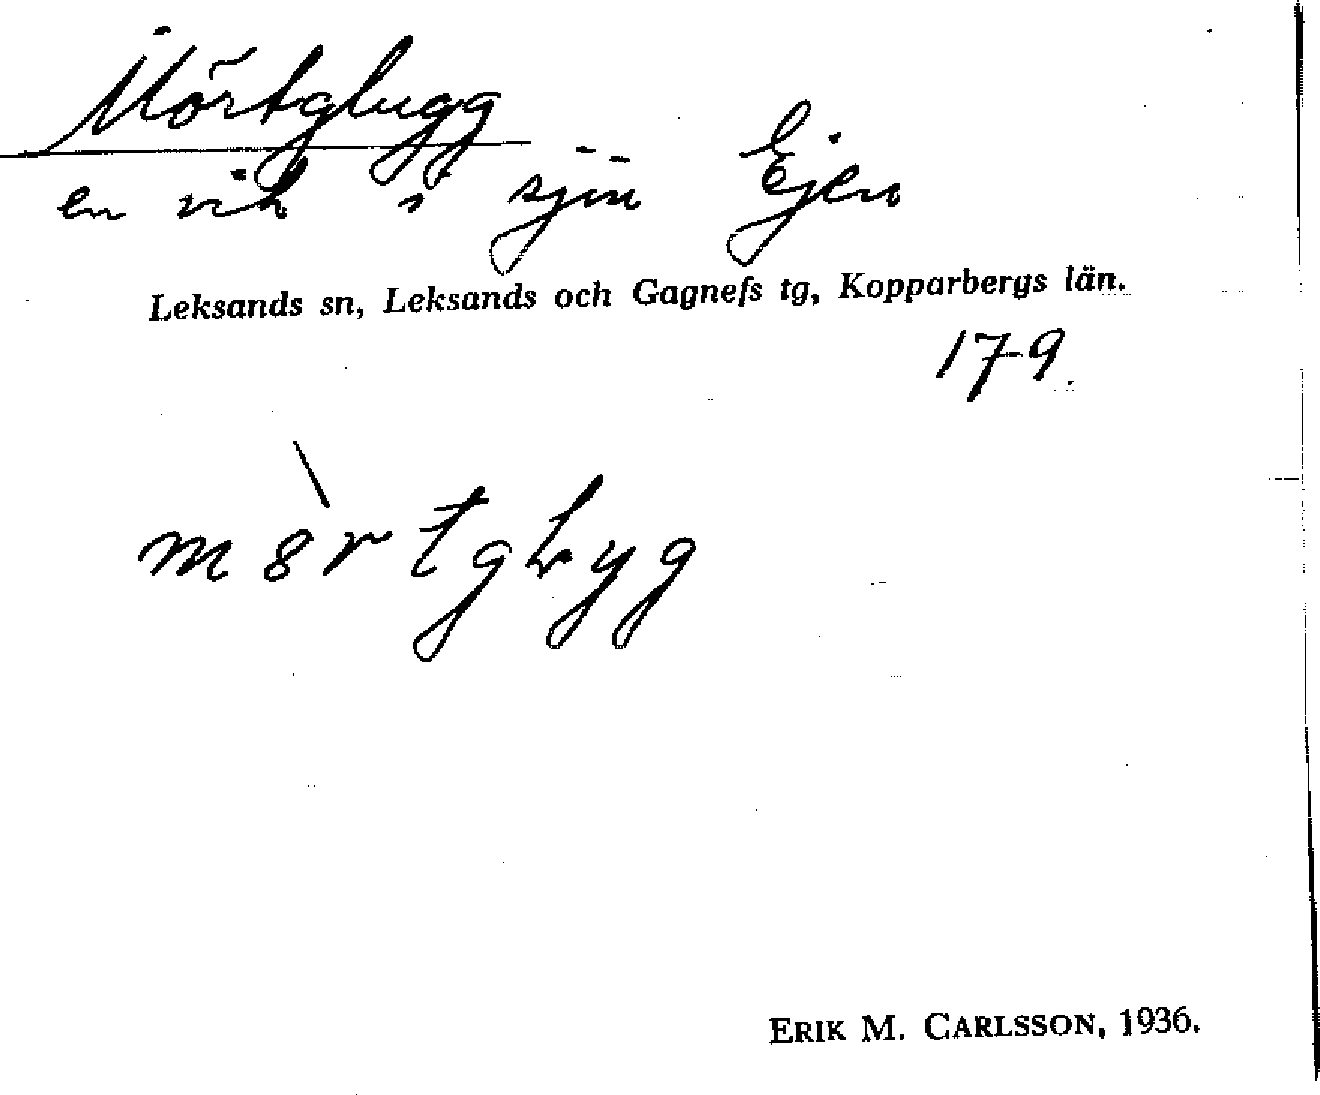 Mörtglugg
en vik i sjön Ejen
Leksands sn, Leksands och Gagnefs tg, Kopparbergs län.
179
mörtglyg
ERIK M. CARLSSON, 1936.